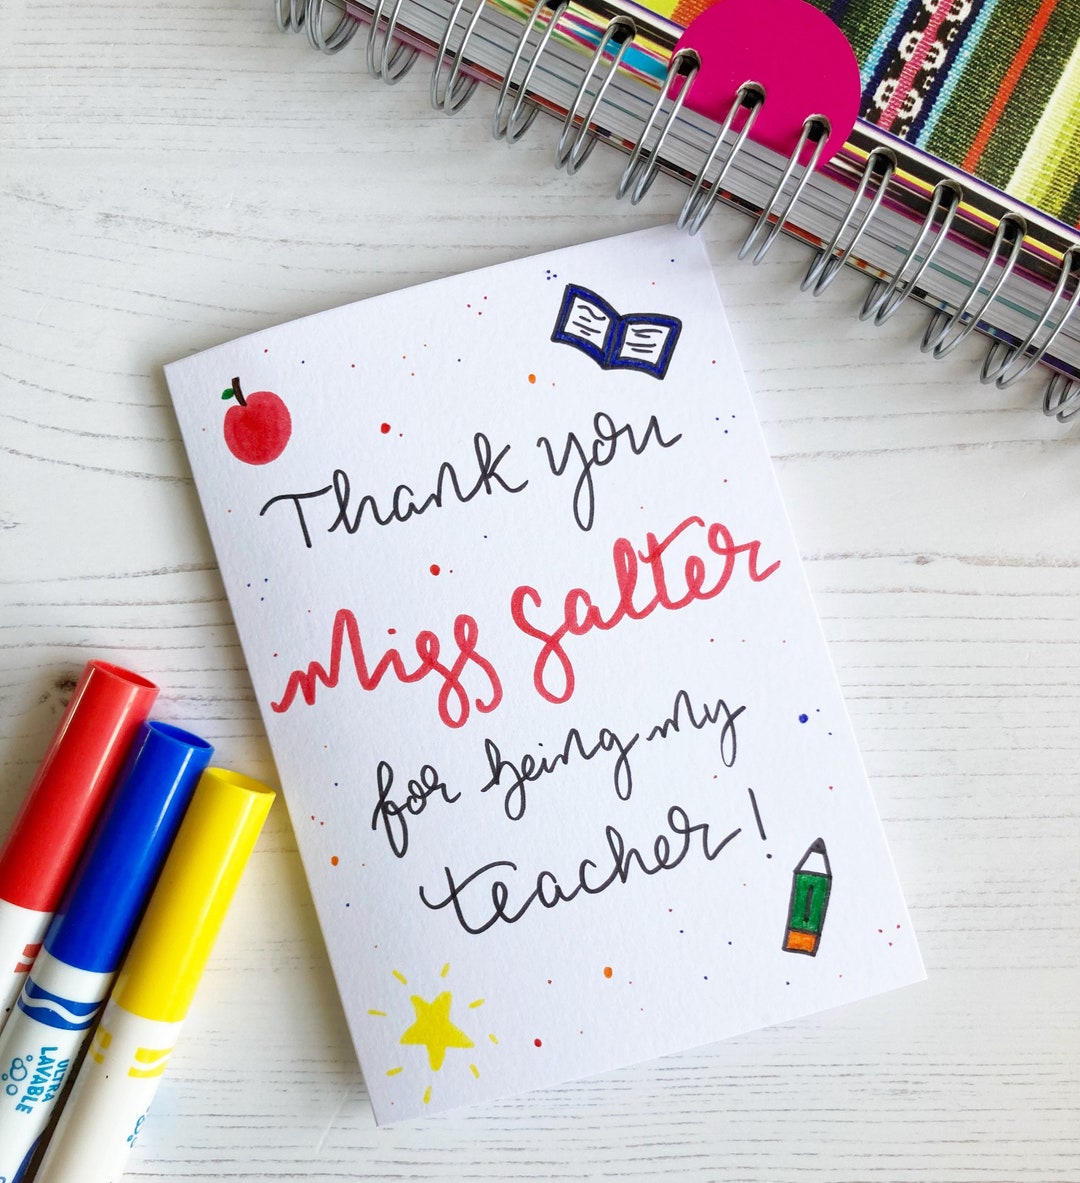 Thank you
Miss Salter
for being my
teacher!
ULTRA
LAVABLE